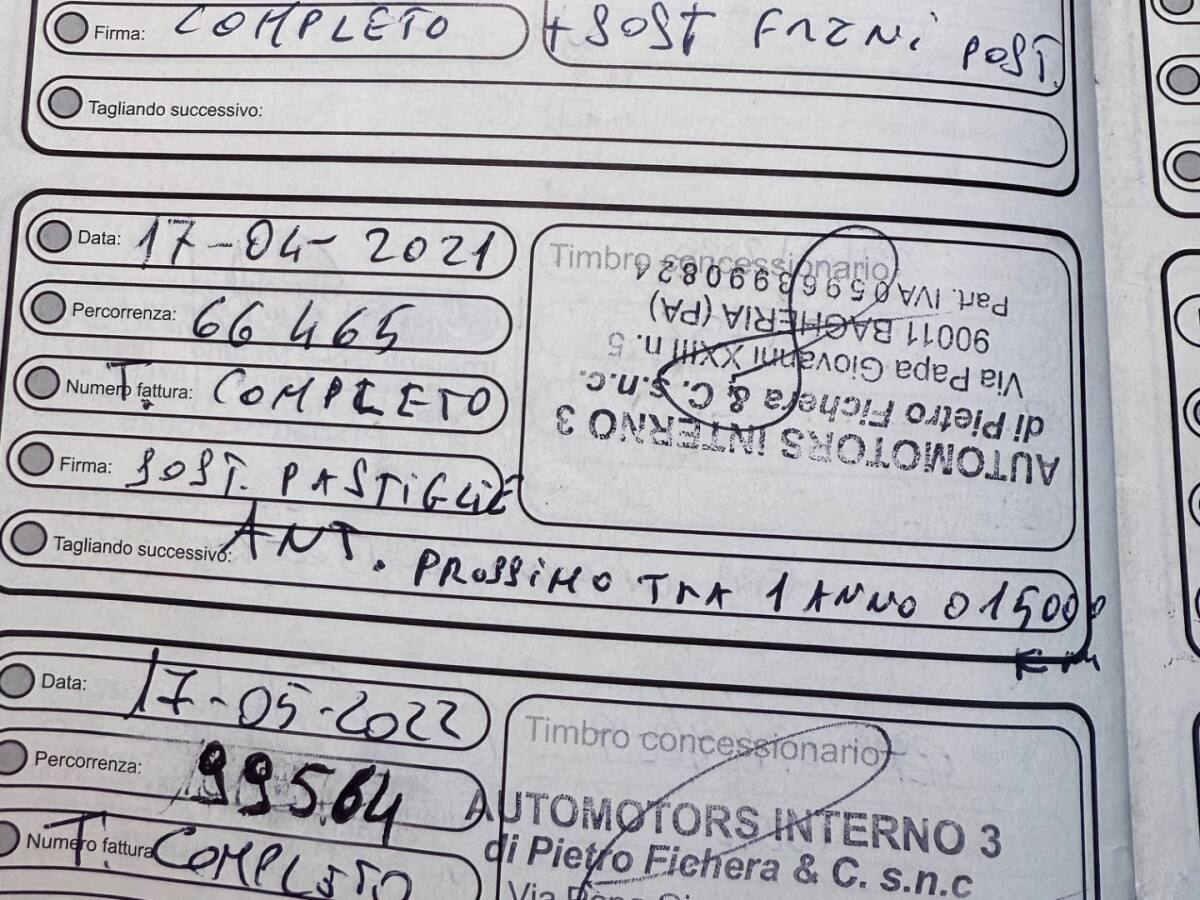 Firma: COMPLETO
+ SOST FRENI POST.
Tagliando successivo:
Data: 17-04-2021
Percorrenza: 66465
Numero fattura: T. COMPLETO
Firma: SOST. PASTIGLIE
Tagliando successivo: ANT. PROSSIMO TRA 1 ANNO O 15000
KM
Timbro concessionario
AUTOMOTORS INTERNO 3
di Pietro Fichera & C. s.n.c.
Via Papa Giovanni XXIII n. 5
90011 BAGHERIA (PA)
Part. IVA 05963990824
Data: 17-05-2022
Percorrenza: 99564
Numero fattura T. COMPLETO
Timbro concessionario
AUTOMOTORS INTERNO 3
di Pietro Fichera & C. s.n.c
Via Papa